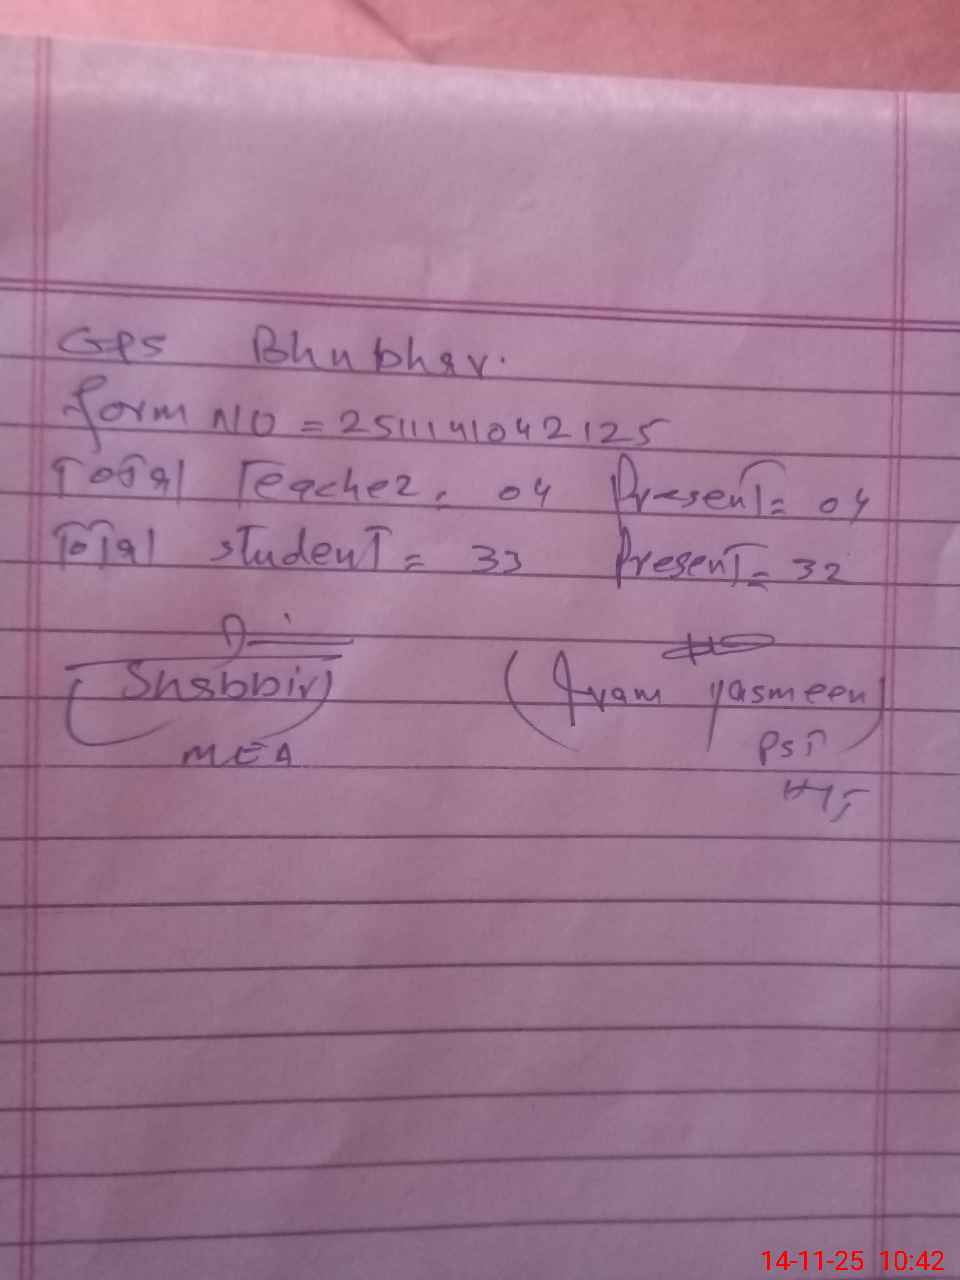 GPS Bhubhar.
form NO = 2511141042125
Total Teacher = 04 Present = 04
Total student = 33 Present = 32
(Shabbir) (Iram Yasmeen)
MEA PST
14-11-25 10:42